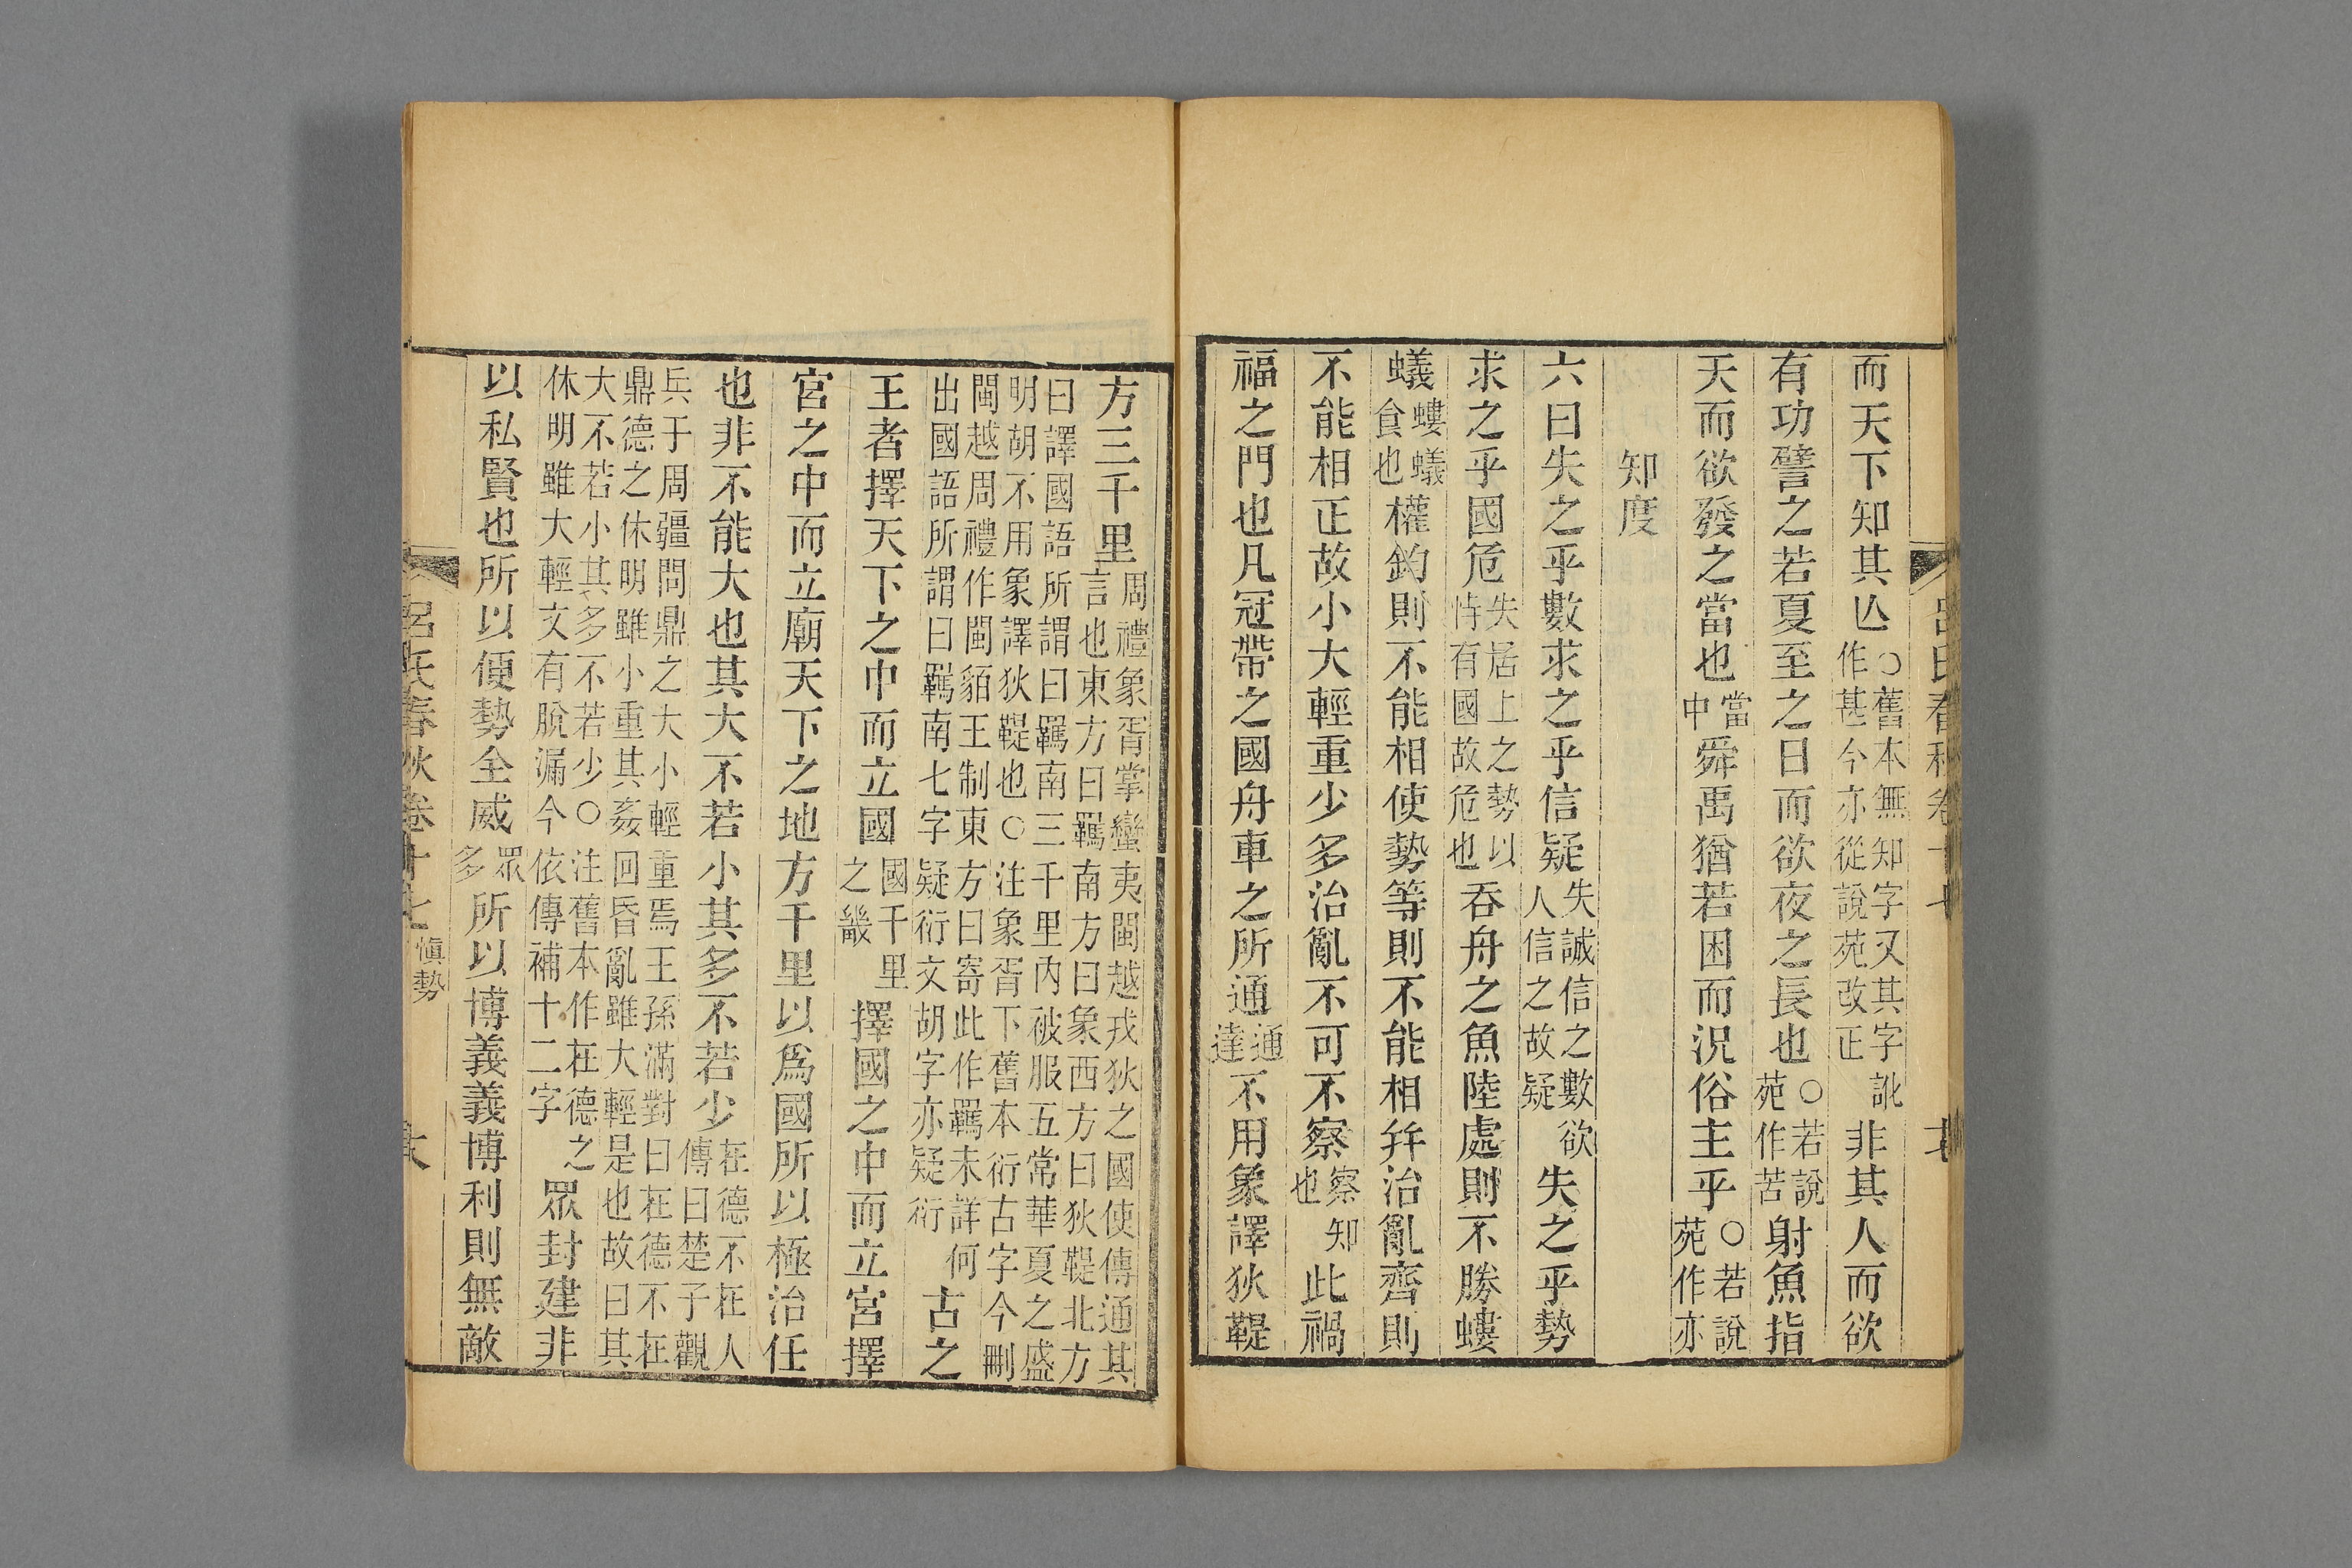 呂氏春秋卷十七
而天下知其亾○舊本無知字又其字訛作甚今亦從說苑改正非其人而欲
有功譬之若夏至之日而欲夜之長也○若說苑作苦射魚指
天而欲發之當也當中舜禹猶若困而況俗主乎○若說苑作亦
知度
六曰失之乎數求之乎信疑失誠信之數欲人信之故疑失之乎勢
求之乎國危失居上之勢以恃有國故危也吞舟之魚陸處則不勝螻
蟻螻蟻食也權鈞則不能相使勢等則不能相幷治亂齊則
不能相正故小大輕重少多治亂不可不察察知也此禍
福之門也凡冠帶之國舟車之所通通達不用象譯狄鞮
方三千里周禮象胥掌蠻夷閩越戎狄之國使傳通其言也東方曰羈南方曰象西方曰狄鞮北方
曰譯國語所謂曰羈南三千里內被服五常華夏之盛明胡不用象譯狄鞮也○注象胥下舊本衍古字今刪
閩越周禮作閩貊王制東方曰寄此作羈未詳何出國語所謂曰羈南七字疑衍文胡字亦疑衍古之
王者擇天下之中而立國國千里之畿擇國之中而立宮擇
宮之中而立廟天下之地方千里以爲國所以極治任
也非不能大也其大不若小其多不若少在德不在人傳曰楚子觀
兵于周疆問鼎之大小輕重焉王孫滿對曰在德不在鼎德之休明雖小重其姦回昏亂雖大輕是也故曰其
大不若小其多不若少○注舊本作在德之休明雖大輕文有脫漏今依傳補十二字眾封建非
以私賢也所以便勢全威眾多所以博義義博利則無敵
呂氏春秋卷十七 愼勢